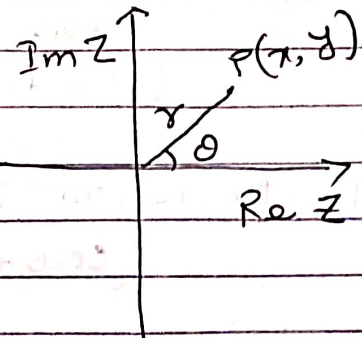 Im Z
P(x, y)
r
θ
Re Z